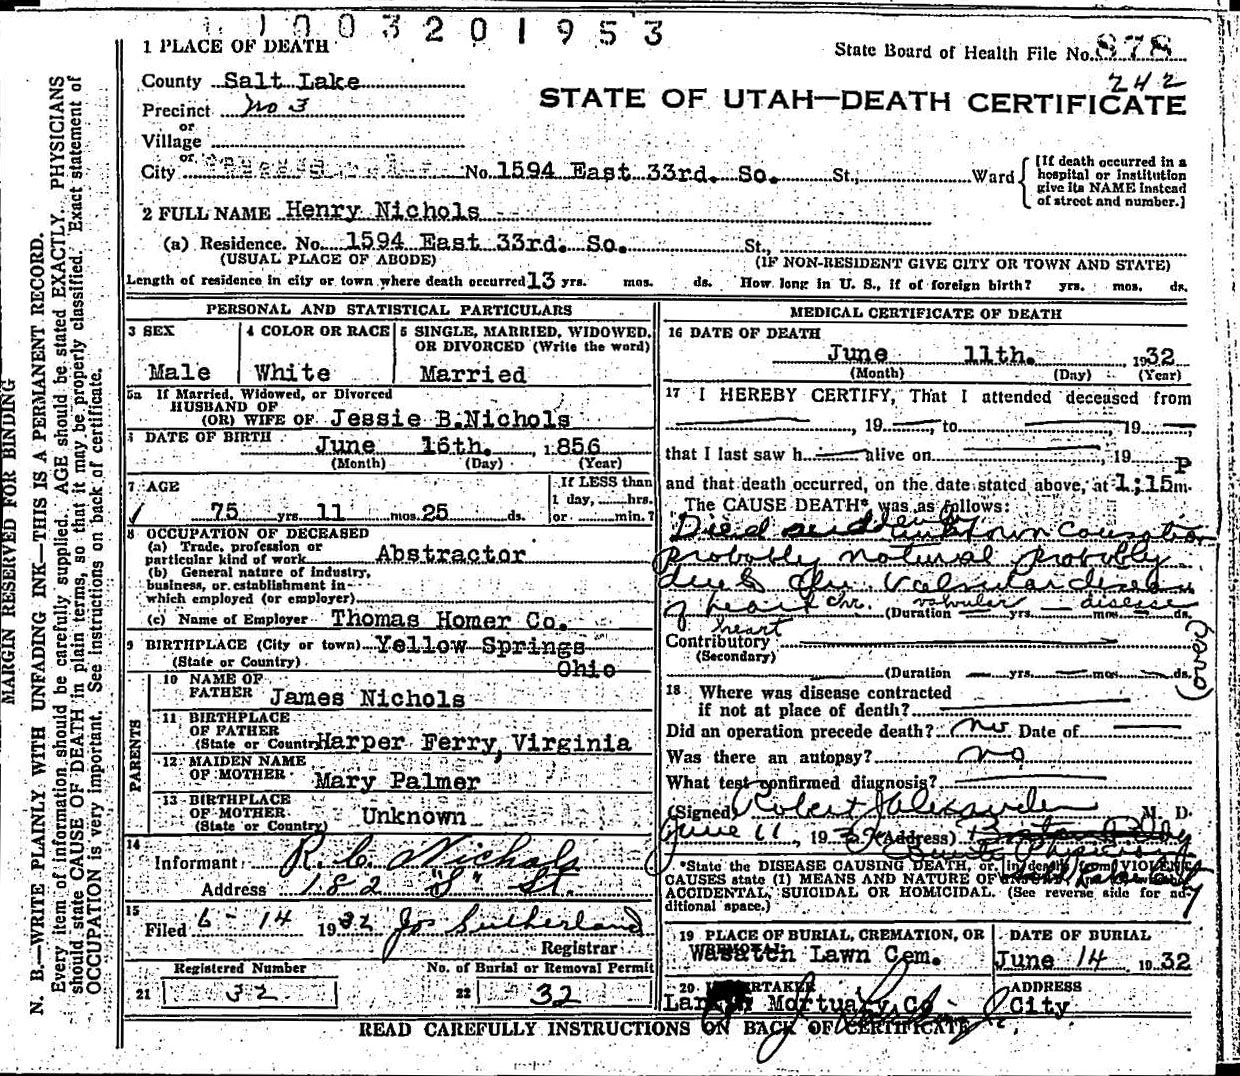 1003201953
1 PLACE OF DEATH
State Board of Health File No. 878
242
County Salt Lake
STATE OF UTAH—DEATH CERTIFICATE
Precinct No 3
or
Village
or
City No. 1594 East 33rd. So. St., Ward
[If death occurred in a
hospital or institution
give its NAME instead
of street and number.]
2 FULL NAME Henry Nichols
(a) Residence. No. 1594 East 33rd. So. St.,
(USUAL PLACE OF ABODE) (IF NON-RESIDENT GIVE CITY OR TOWN AND STATE)
Length of residence in city or town where death occurred 13 yrs. mos. ds. How long in U. S., if of foreign birth? yrs. mos. ds.
PERSONAL AND STATISTICAL PARTICULARS
3 SEX 4 COLOR OR RACE 5 SINGLE, MARRIED, WIDOWED,
OR DIVORCED (Write the word)
Male White Married
5a If Married, Widowed, or Divorced
HUSBAND OF
(OR) WIFE OF Jessie B.Nichols
6 DATE OF BIRTH June 16th. , 1856
(Month) (Day) (Year)
7 AGE If LESS than
1 day, hrs.
75 yrs 11 mos. 25 ds. or min.?
8 OCCUPATION OF DECEASED
(a) Trade, profession or
particular kind of work Abstractor
(b) General nature of industry,
business, or establishment in
which employed (or employer)
(c) Name of Employer Thomas Homer Co.
9 BIRTHPLACE (City or town) Yellow Springs
(State or Country) Ohio
PARENTS
10 NAME OF
FATHER James Nichols
11 BIRTHPLACE
OF FATHER
(State or Country) Harper Ferry, Virginia
12 MAIDEN NAME
OF MOTHER Mary Palmer
13 BIRTHPLACE
OF MOTHER
(State or Country) Unknown
14
Informant R. C. Nichols
Address 182 "S" St.
15
Filed 6-14 1932 Jos Sutherland
Registrar
Registered Number No. of Burial or Removal Permit
21 32 22 32
MEDICAL CERTIFICATE OF DEATH
16 DATE OF DEATH
June 11th. 1932
(Month) (Day) (Year)
17 I HEREBY CERTIFY, That I attended deceased from
, 19 , to , 19 ,
that I last saw h alive on , 19
P
and that death occurred, on the date stated above, at 1;15 m.
The CAUSE DEATH* was as follows:
Died suddenly unknown causation
probably natural probably
due to chr. Valvular disease
of heart chr. valvular disease
(Duration yrs. mos. ds.
heart
Contributory
(Secondary)
(over)
(Duration yrs. mos. ds.
18 Where was disease contracted
if not at place of death?
Did an operation precede death? no Date of
Was there an autopsy? no
What test confirmed diagnosis?
(Signed) Robert J Alexander M. D.
June 11, 1932 (Address)
County Physician
Salt Lake City
*State the DISEASE CAUSING DEATH, or, in deaths from VIOLENT
CAUSES state (1) MEANS AND NATURE OF
ACCIDENTAL, SUICIDAL OR HOMICIDAL. (See reverse side for ad-
ditional space.)
19 PLACE OF BURIAL, CREMATION, OR DATE OF BURIAL
REMOVAL
Wasatch Lawn Cem. June 14 1932
20 UNDERTAKER ADDRESS
Larkin Mortuary Co City
READ CAREFULLY INSTRUCTIONS ON BACK OF CERTIFICATE
MARGIN RESERVED FOR BINDING
N. B.—WRITE PLAINLY WITH UNFADING INK—THIS IS A PERMANENT RECORD.
Every item of information should be carefully supplied. AGE should be stated EXACTLY. PHYSICIANS
should state CAUSE OF DEATH in plain terms, so that it may be properly classified. Exact statement of
OCCUPATION is very important. See instructions on back of certificate.